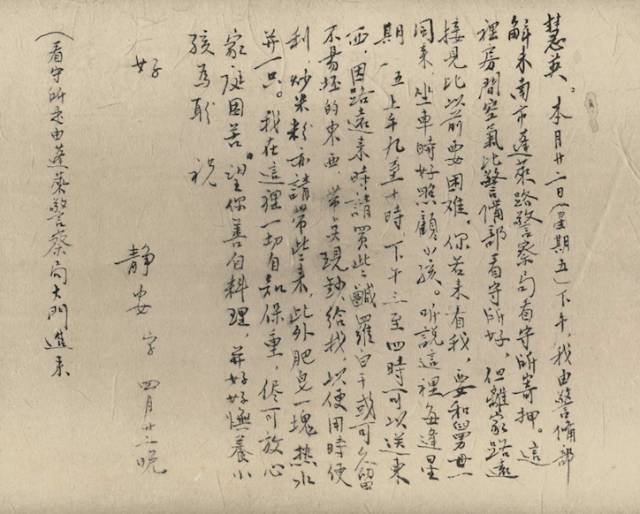 慧英。本月廿二日(星期五)下午,我由警備部
解來南市蓬萊路警察局看守所寄押。這
裡房間空氣比警備部看守所好,但離家路遠
接見比以前要困難。你若來看我,要和舅母一
同來,坐車時好照顧小孩。听說這裡每逢星
期一、五上午九至十時下午三至四時可以送東
西,因路遠來時請買些鹹羅白干或可久留
不易坯的東西,帶点現鈔給我,以便用時便
利,炒米粉亦請帶些來,此外肥皂一塊热水
并一只。我在這裡一切自知保重,侭可放心
家庭困苦。望你善自料理,并好好撫養小
孩爲盼 祝
好
靜安字 四月廿二晚
(看守所走由蓬萊警察局大門進來